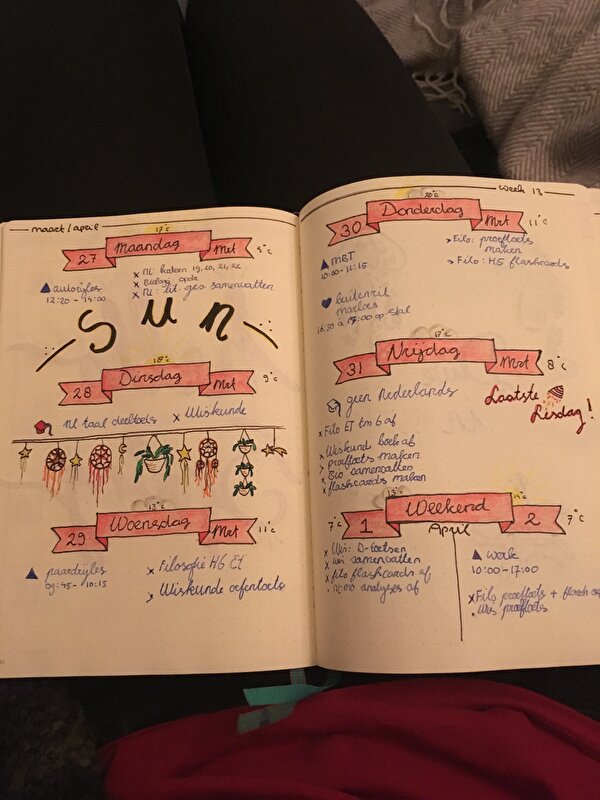 maart/april
17°c
27 Maandag Mrt 5°c
▲ autorijles
12:20 - 14:00
x NL
x Biologie
x NL: lit. ges. samenvatten
sun
18°c
28 Dinsdag Mrt 9°c
NL taal deeltoets
x Wiskunde
13°c
29 Woensdag Mrt 11°c
▲ paardrijles
09:45 - 10:15
x Filosofie H6 ET
Wiskunde oefentoets
week 13
20°c
30 Donderdag Mrt 11°c
▲ MRT
10:00 - 11:15
♥ buitenrit
marloes
16:30 a 17:00 op stal
> Filo: proeftoets
maken
> Filo: H5 flashcards
17°c
31 Vrijdag Mrt 8°c
geen Nederlands
Laatste
lesdag!
x Filo ET tm 6 af
x Wiskund boek af
> proeftoets maken
x Bio samenvatten
x flashcards maken
7°c 1 Weekend 2 7°c
April
x Wis: D-toetsen
samenvatten
x filo flashcards af
analyses af
▲ werk
10:00 - 17:00
x Filo proeftoets +
Wis proeftoets